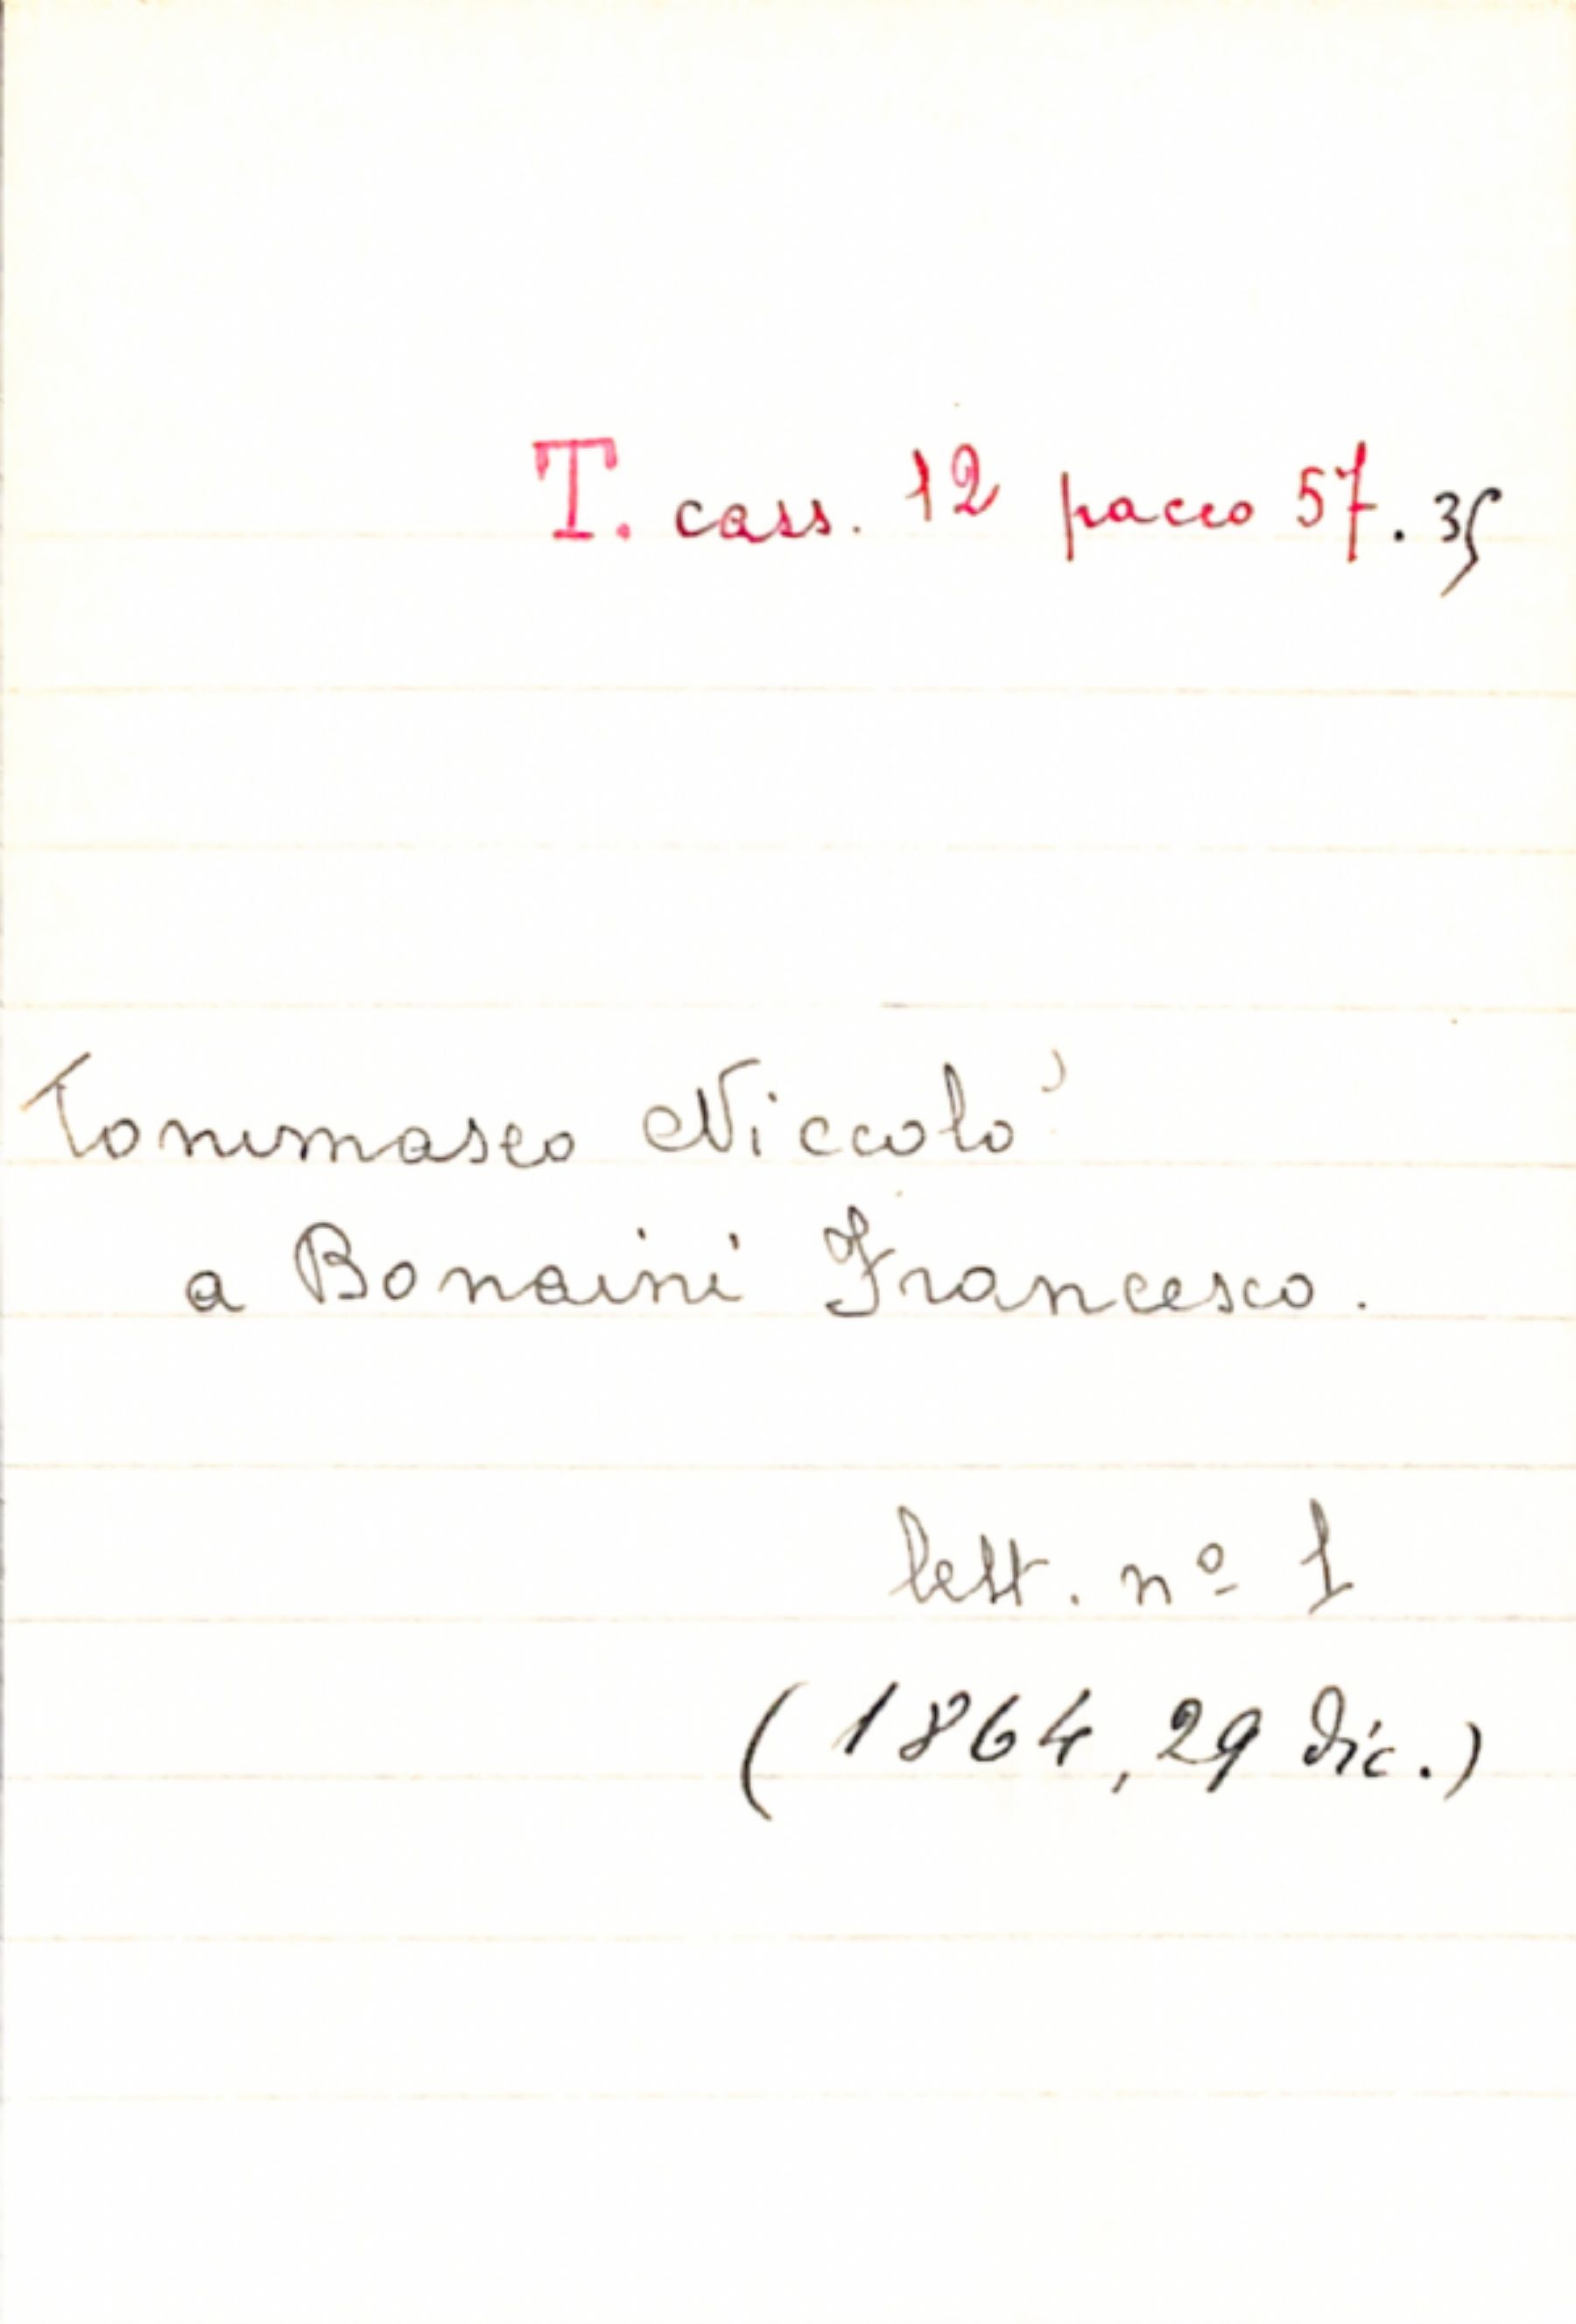 T. cass. 12 pacco 57. 35
Tommaseo Niccolo'
a Bonaini Francesco.
lett. nº 1
(1864, 29 Dic.)